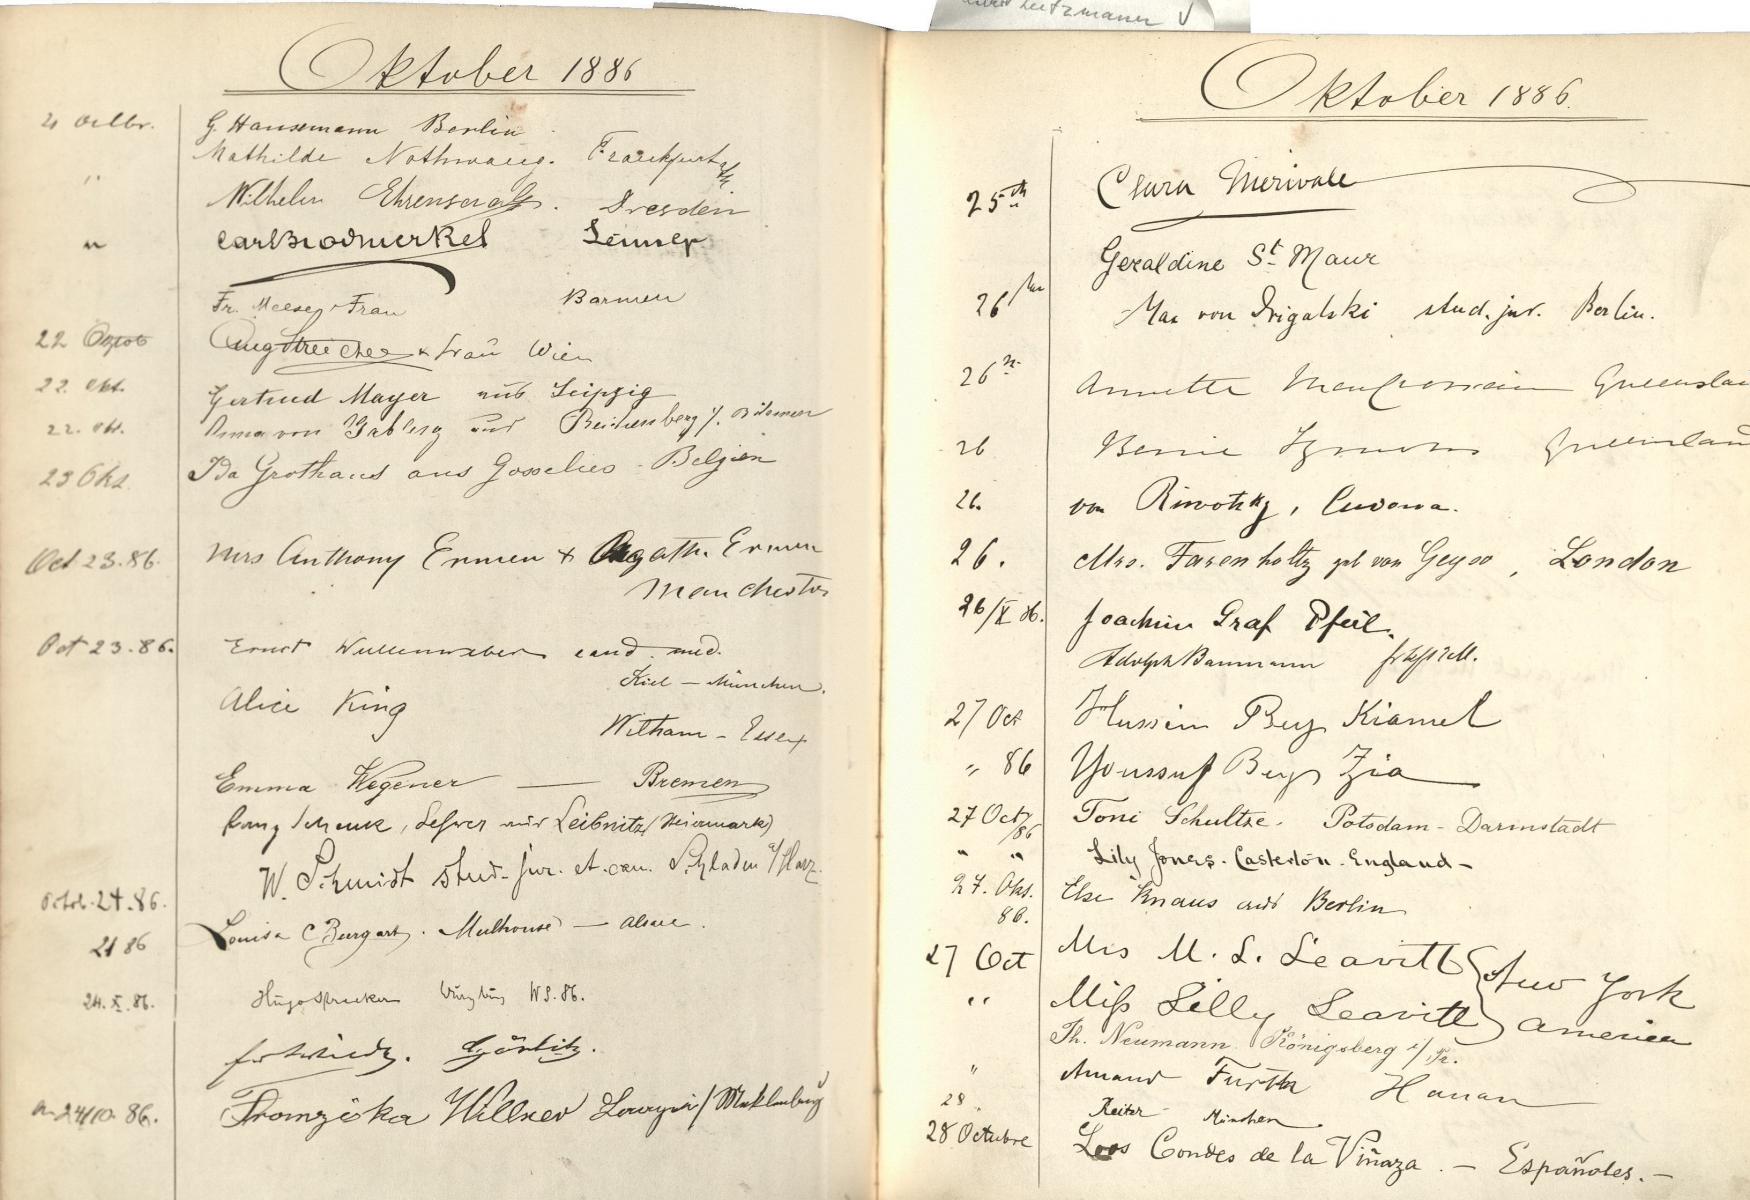 Oktober 1886
G. Hansemann Berlin
Mathilde Nothwang. Frankfurt a/M.
"
Wilhelm Dresden
" Carl Brodmerkel
Fr. Meese + Frau Barmen
22 Aug Streicher & Frau Wien
22. Okt. Gertrud Mayer aus Leipzig
22. Okt. Anna von aus Reichenberg i/. Böhmen
23 Okt. Ida Grothaus aus Gosselies - Belgien
Oct 23. 86. Mrs Anthony Ermen & Agathe Ermen
Manchester
Oct 23. 86. Ernst Wullenweber cand. med.
Kiel - München.
Alice King
Witham - Essex
Emma Wegener — Bremen
Franz Schenk, Lehrer aus Leibnitz (Steiermark)
W. Schmidt stud. jur. et. cam. Schladen a/Harz.
24. 86.
Louisa C Burgart. Mulhouse - Alsace.
86
24. X. 86. Hugo Würzburg WS. 86.
Görlitz.
24/10 86. Franziska Willner /Meklenburg
Oktober 1886.
25th Clara Merivale
Geraldine St. Maur
26 Max von Drigalski stud. jur. Berlin.
26 Annette Queensland
26 Queensland
26. von Cudowa.
26. Mrs. Farenholtz geb von Geyso, London
26/X 86. Joachim Graf Pfeil.
Adolph Baumann
27 Oct Hussein Bey Kiamel
" 86 Youssuf Bey Zia
27 Oct/86 Toni Schultze. Potsdam - Darmstadt
" " Lily Jones. Casterton. England -
27. Okt. 86. Else Knaus aus Berlin
27 Oct Mrs M. L. Leavitt } New York
" Miss Lilly Leavitt } America
Th. Neumann Königsberg i/Pr.
" Amand Furth Hanau
28 Reiter - München
28 Octubre Los Condes de la Viñaza. - Españoles. -